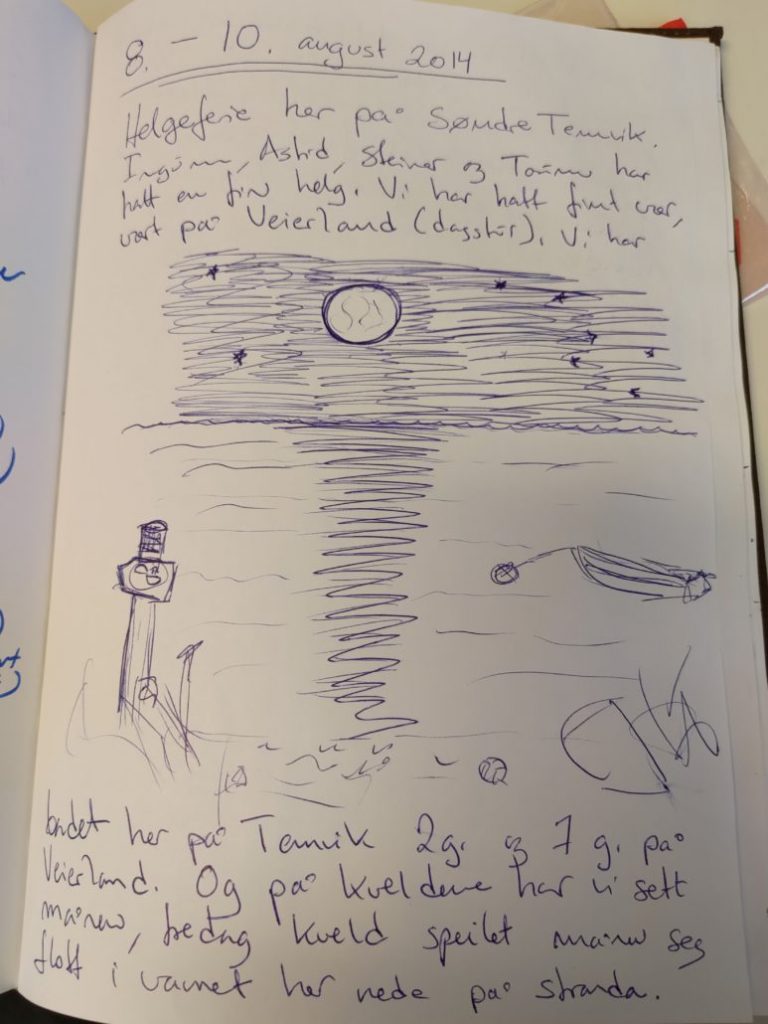 8. – 10. august 2014
Helgeferie her på Søndre Temvik.
Ingunn, Astrid, Steinar og har
hatt en fin helg. Vi har hatt fint vær,
vært på Veierland (dagstur). Vi har
badet her på Temvik 2g. og 7 g. på
Veierland. Og på kveldene har vi sett
månen, fredag kveld speilet månen seg
flott i vannet her nede på stranda.